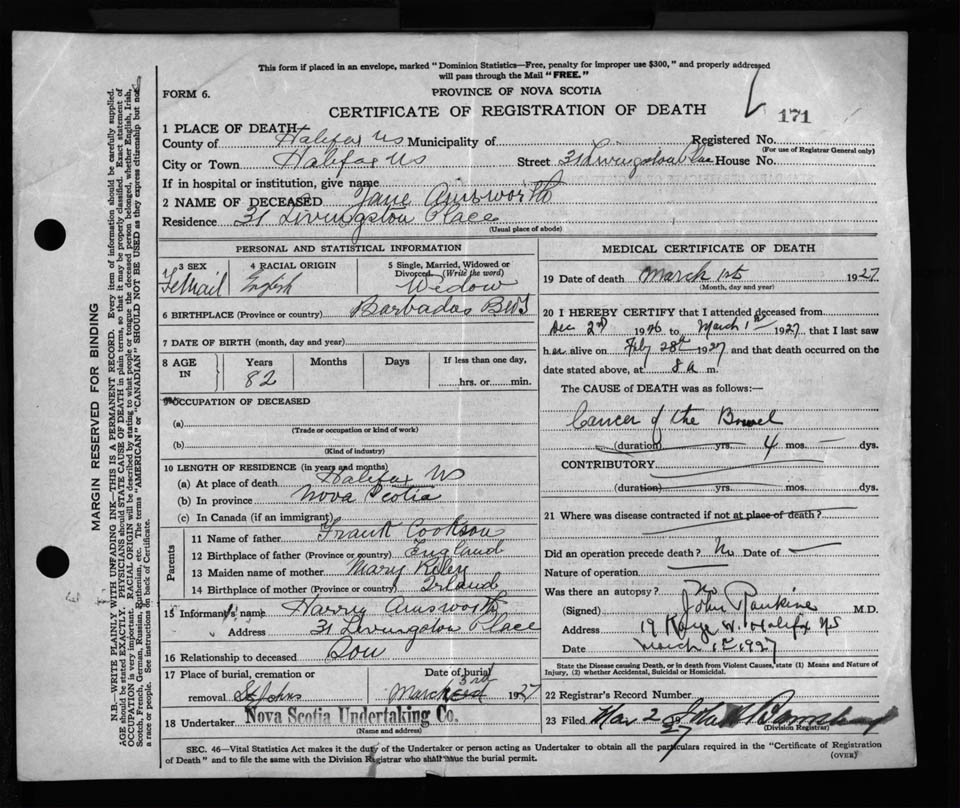 This form if placed in an envelope, marked "Dominion Statistics—Free, penalty for improper use $300," and properly addressed
will pass through the Mail "FREE."
FORM 6.
PROVINCE OF NOVA SCOTIA
CERTIFICATE OF REGISTRATION OF DEATH
171
1 PLACE OF DEATH
County of Halifax NS Municipality of Registered No.
(For use of Registrar General only)
City or Town Halifax NS Street 31 Livingston Place House No.
If in hospital or institution, give name
2 NAME OF DECEASED Jane Ainsworth
Residence 31 Livingston Place
(Usual place of abode)
PERSONAL AND STATISTICAL INFORMATION
3 SEX 4 RACIAL ORIGIN 5 Single, Married, Widowed or
Divorced (Write the word)
Femail English Widow
6 BIRTHPLACE (Province or country) Barbados BWI
7 DATE OF BIRTH (month, day and year)
8 AGE IN Years Months Days If less than one day,
82 hrs. or min.
9 OCCUPATION OF DECEASED
(a)
(Trade or occupation or kind of work)
(b)
(Kind of industry)
10 LENGTH OF RESIDENCE (in years and months)
(a) At place of death Halifax NS
(b) In province Nova Scotia
(c) In Canada (if an immigrant)
Parents
11 Name of father Frank Cookson
12 Birthplace of father (Province or country) England
13 Maiden name of mother Mary Riley
14 Birthplace of mother (Province or country) Irland
15 Informant's name Harry Ainsworth
Address 31 Livingston Place
16 Relationship to deceased Son
17 Place of burial, cremation or Date of burial
removal St Johns March 3rd 1927
18 Undertaker Nova Scotia Undertaking Co.
(Name and address)
MEDICAL CERTIFICATE OF DEATH
19 Date of death March 1st 1927
(Month, day and year)
20 I HEREBY CERTIFY that I attended deceased from
Dec 2nd 1926 to March 1st 1927, that I last saw
her alive on Feby 28th 1927 and that death occurred on the
date stated above, at 8 a m.
The CAUSE of DEATH was as follows:—
Cancer of the Bowel
(duration) yrs. 4 mos. — dys.
CONTRIBUTORY
(duration) yrs. mos. dys.
21 Where was disease contracted if not at place of death?
Did an operation precede death? No Date of —
Nature of operation —
Was there an autopsy? No
(Signed) John Rankine M.D.
Address Halifax NS
Date March 1st 1927
State the Disease causing Death, or in death from Violent Causes, state (1) Means and Nature of
Injury, (2) whether Accidental, Suicidal or Homicidal.
22 Registrar's Record Number
23 Filed Mar 2 27
(Division Registrar)
SEC. 46—Vital Statistics Act makes it the duty of the Undertaker or person acting as Undertaker to obtain all the particulars required in the "Certificate of Registration
of Death" and to file the same with the Division Registrar who shall issue the burial permit.
(OVER)
MARGIN RESERVED FOR BINDING
N.B.—WRITE PLAINLY WITH UNFADING INK—THIS IS A PERMANENT RECORD. Every item of information should be carefully supplied.
AGE should be stated EXACTLY. PHYSICIANS should STATE CAUSE OF DEATH in plain terms, so that it may be properly classified. Exact statement of
OCCUPATION is very important. RACIAL ORIGIN will be described by stating to what people or tongue the deceased person belonged, whether English, Irish,
Scotch, French, German, Russian, Ruthenian, etc. The terms "AMERICAN" or "CANADIAN" SHOULD NOT BE USED as they express citizenship but not
a race or people. See instructions on back of Certificate.